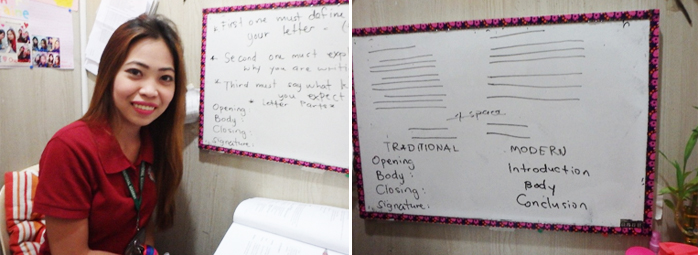 * First one must define
your letter - (
* Second one must exp
why you are writ
* Third must say what
you expect
* Letter Parts *
Opening
Body :
Closing :
Signature :
4 spaces
TRADITIONAL
Opening
Body :
Closing :
Signature :
MODERN
Introduction
Body
Conclusion